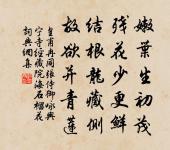 嫩葉生初茂
殘花少更鮮
結根龍藏側
故欲并青蓮
皇甫冉同張侍御咏興
寧寺經藏院海石榴花
詞典網集